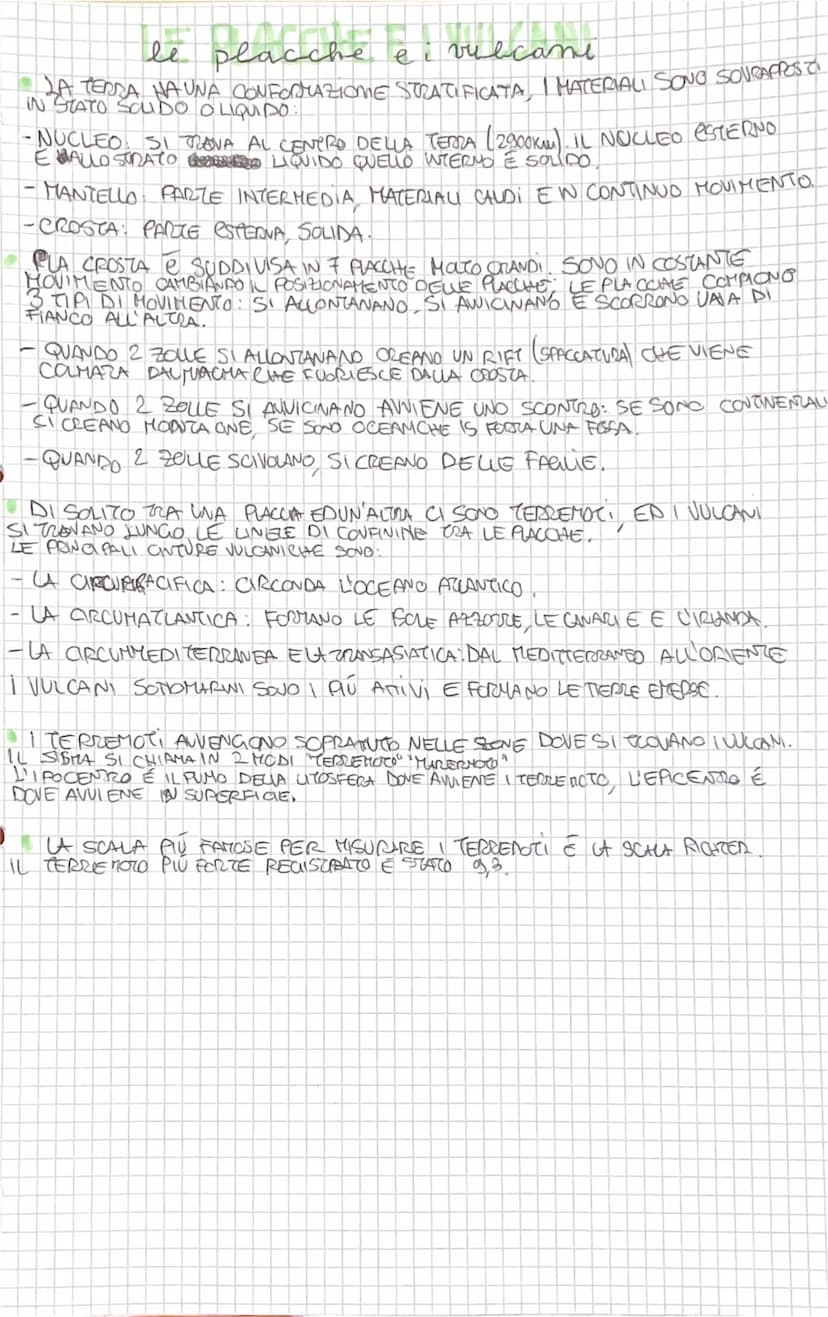 LE PLACCHE E I VULCANI
le placche e i vulcani
LA TERRA HA UNA CONFORMAZIONE STRATIFICATA, I MATERIALI SONO SOVRAPPOSTI
IN STATO SOLIDO O LIQUIDO:
- NUCLEO: SI TROVA AL CENTRO DELLA TERRA (2900km). IL NUCLEO ESTERNO
E ALLO STRATO LIQUIDO QUELLO INTERNO È SOLIDO.
- MANTELLO: PARTE INTERMEDIA, MATERIALI CALDI E IN CONTINUO MOVIMENTO.
- CROSTA: PARTE ESTERNA, SOLIDA.
LA CROSTA È SUDDIVISA IN 7 PLACCHE MOLTO GRANDI. SONO IN COSTANTE
MOVIMENTO CAMBIANDO IL POSIZIONAMENTO DELLE PLACCHE. LE PLACCHE COMPIONO
3 TIPI DI MOVIMENTO: SI ALLONTANANO, SI AVVICINANO E SCORRONO UNA DI
FIANCO ALL'ALTRA.
- QUANDO 2 ZOLLE SI ALLONTANANO CREANO UN RIFT (SPACCATURA) CHE VIENE
COLMATA DAL MAGMA CHE FUORIESCE DALLA CROSTA.
- QUANDO 2 ZOLLE SI AVVICINANO AVVIENE UNO SCONTRO: SE SONO CONTINENTALI
SI CREANO MONTAGNE, SE SONO OCEANICHE IS FORMA UNA FOSSA.
- QUANDO 2 ZOLLE SCIVOLANO, SI CREANO DELLE FAGLIE.
DI SOLITO TRA UNA PLACCA ED UN'ALTRA CI SONO TERREMOTI, ED I VULCANI
SI TROVANO LUNGO LE LINEE DI CONFININE TRA LE PLACCHE.
LE PRINCIPALI CINTURE VULCANICHE SONO:
- LA CIRCUMPACIFICA: CIRCONDA L'OCEANO ATLANTICO.
- LA CIRCUMATLANTICA: FORMANO LE ISOLE AZZORRE, LE CANARIE E L'IRLANDA.
- LA CIRCUMMEDITERRANEA E LA TRANSASIATICA: DAL MEDITTERRANEO ALL'ORIENTE
I VULCANI SOTTOMARINI SONO I PIÚ ATTIVI E FORMANO LE TERRE EMERSE.
I TERREMOTI AVVENGONO SOPRATUTTO NELLE ZONE DOVE SI TROVANO I VULCANI.
IL SISMA SI CHIAMA IN 2 MODI "TERREMOTO" "MAREMOTO"
L'IPOCENTRO É IL PUNTO DELLA LITOSFERA DOVE AVVIENE I TERREMOTO, L'EPICENTRO É
DOVE AVVIENE IN SUPERFICIE.
LA SCALA PIÚ FAMOSE PER MISURARE I TERREMOTI È LA SCALA RICHTER.
IL TERREMOTO PIÙ FORTE REGISTRATO È STATO 9,3.